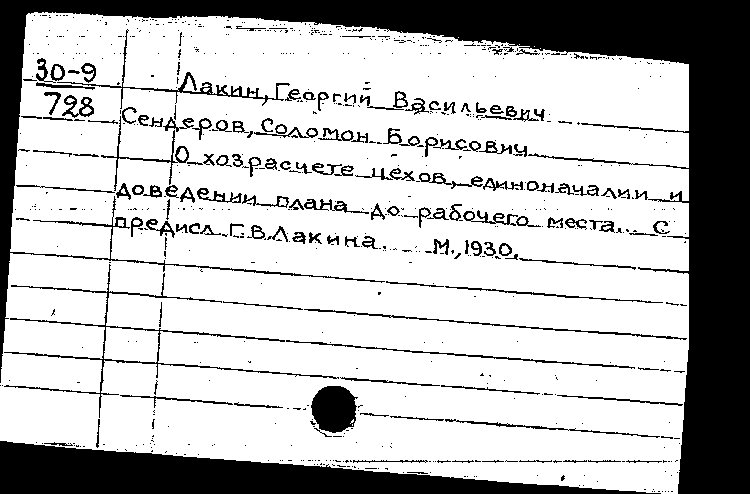 30-9
728
Лакин, Георгий Васильевич
Сендеров, Соломон Борисович
О хозрасчете цехов, единоначалии и
доведении плана до рабочего места. С
предисл. Г.В.Лакина. М., 1930.